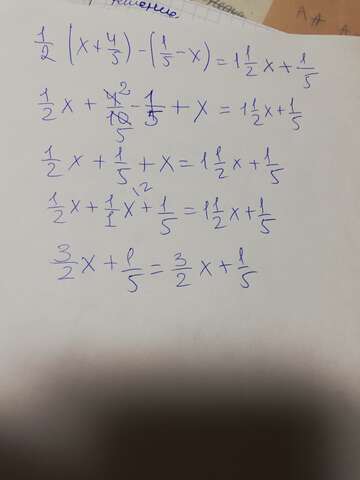 1/2 (x + 4/5) - (1/5 - x) = 1 1/2 x + 1/5
1/2 x + 4̶ 2/1̶0̶ 5 - 1/5 + x = 1 1/2 x + 1/5
1/2 x + 1/5 + x = 1 1/2 x + 1/5
1/2 x + 1/1 x \2 + 1/5 = 1 1/2 x + 1/5
3/2 x + 1/5 = 3/2 x + 1/5